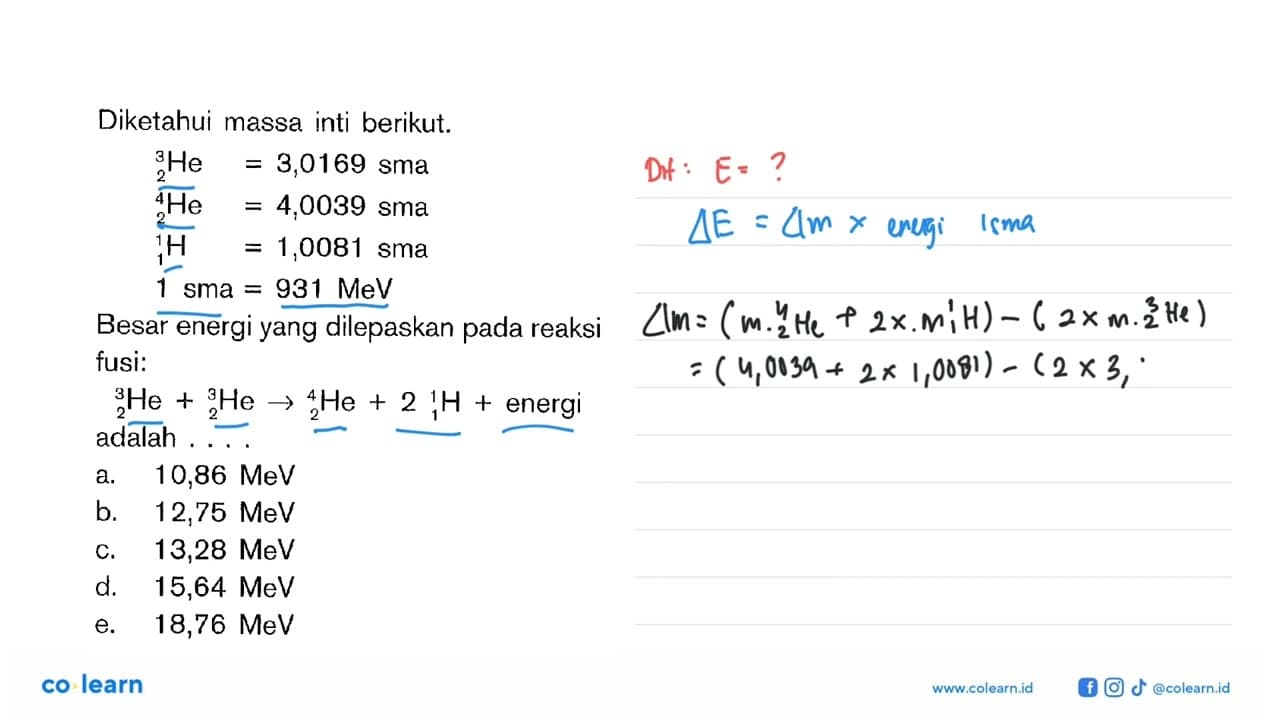 Diketahui massa inti berikut.
³₂He = 3,0169 sma
⁴₂He = 4,0039 sma
¹₁H = 1,0081 sma
1 sma = 931 MeV
Besar energi yang dilepaskan pada reaksi
fusi:
³₂He + ³₂He → ⁴₂He + 2 ¹₁H + energi
adalah . . . .
a. 10,86 MeV
b. 12,75 MeV
c. 13,28 MeV
d. 15,64 MeV
e. 18,76 MeV
Dit : E = ?
ΔE = Δm × energi 1sma
Δm = (m.⁴₂He + 2×.m¹₁H) - (2×m.³₂He)
= (4,0039 + 2 × 1,0081) - (2 × 3,
co·learn
www.colearn.id
@colearn.id